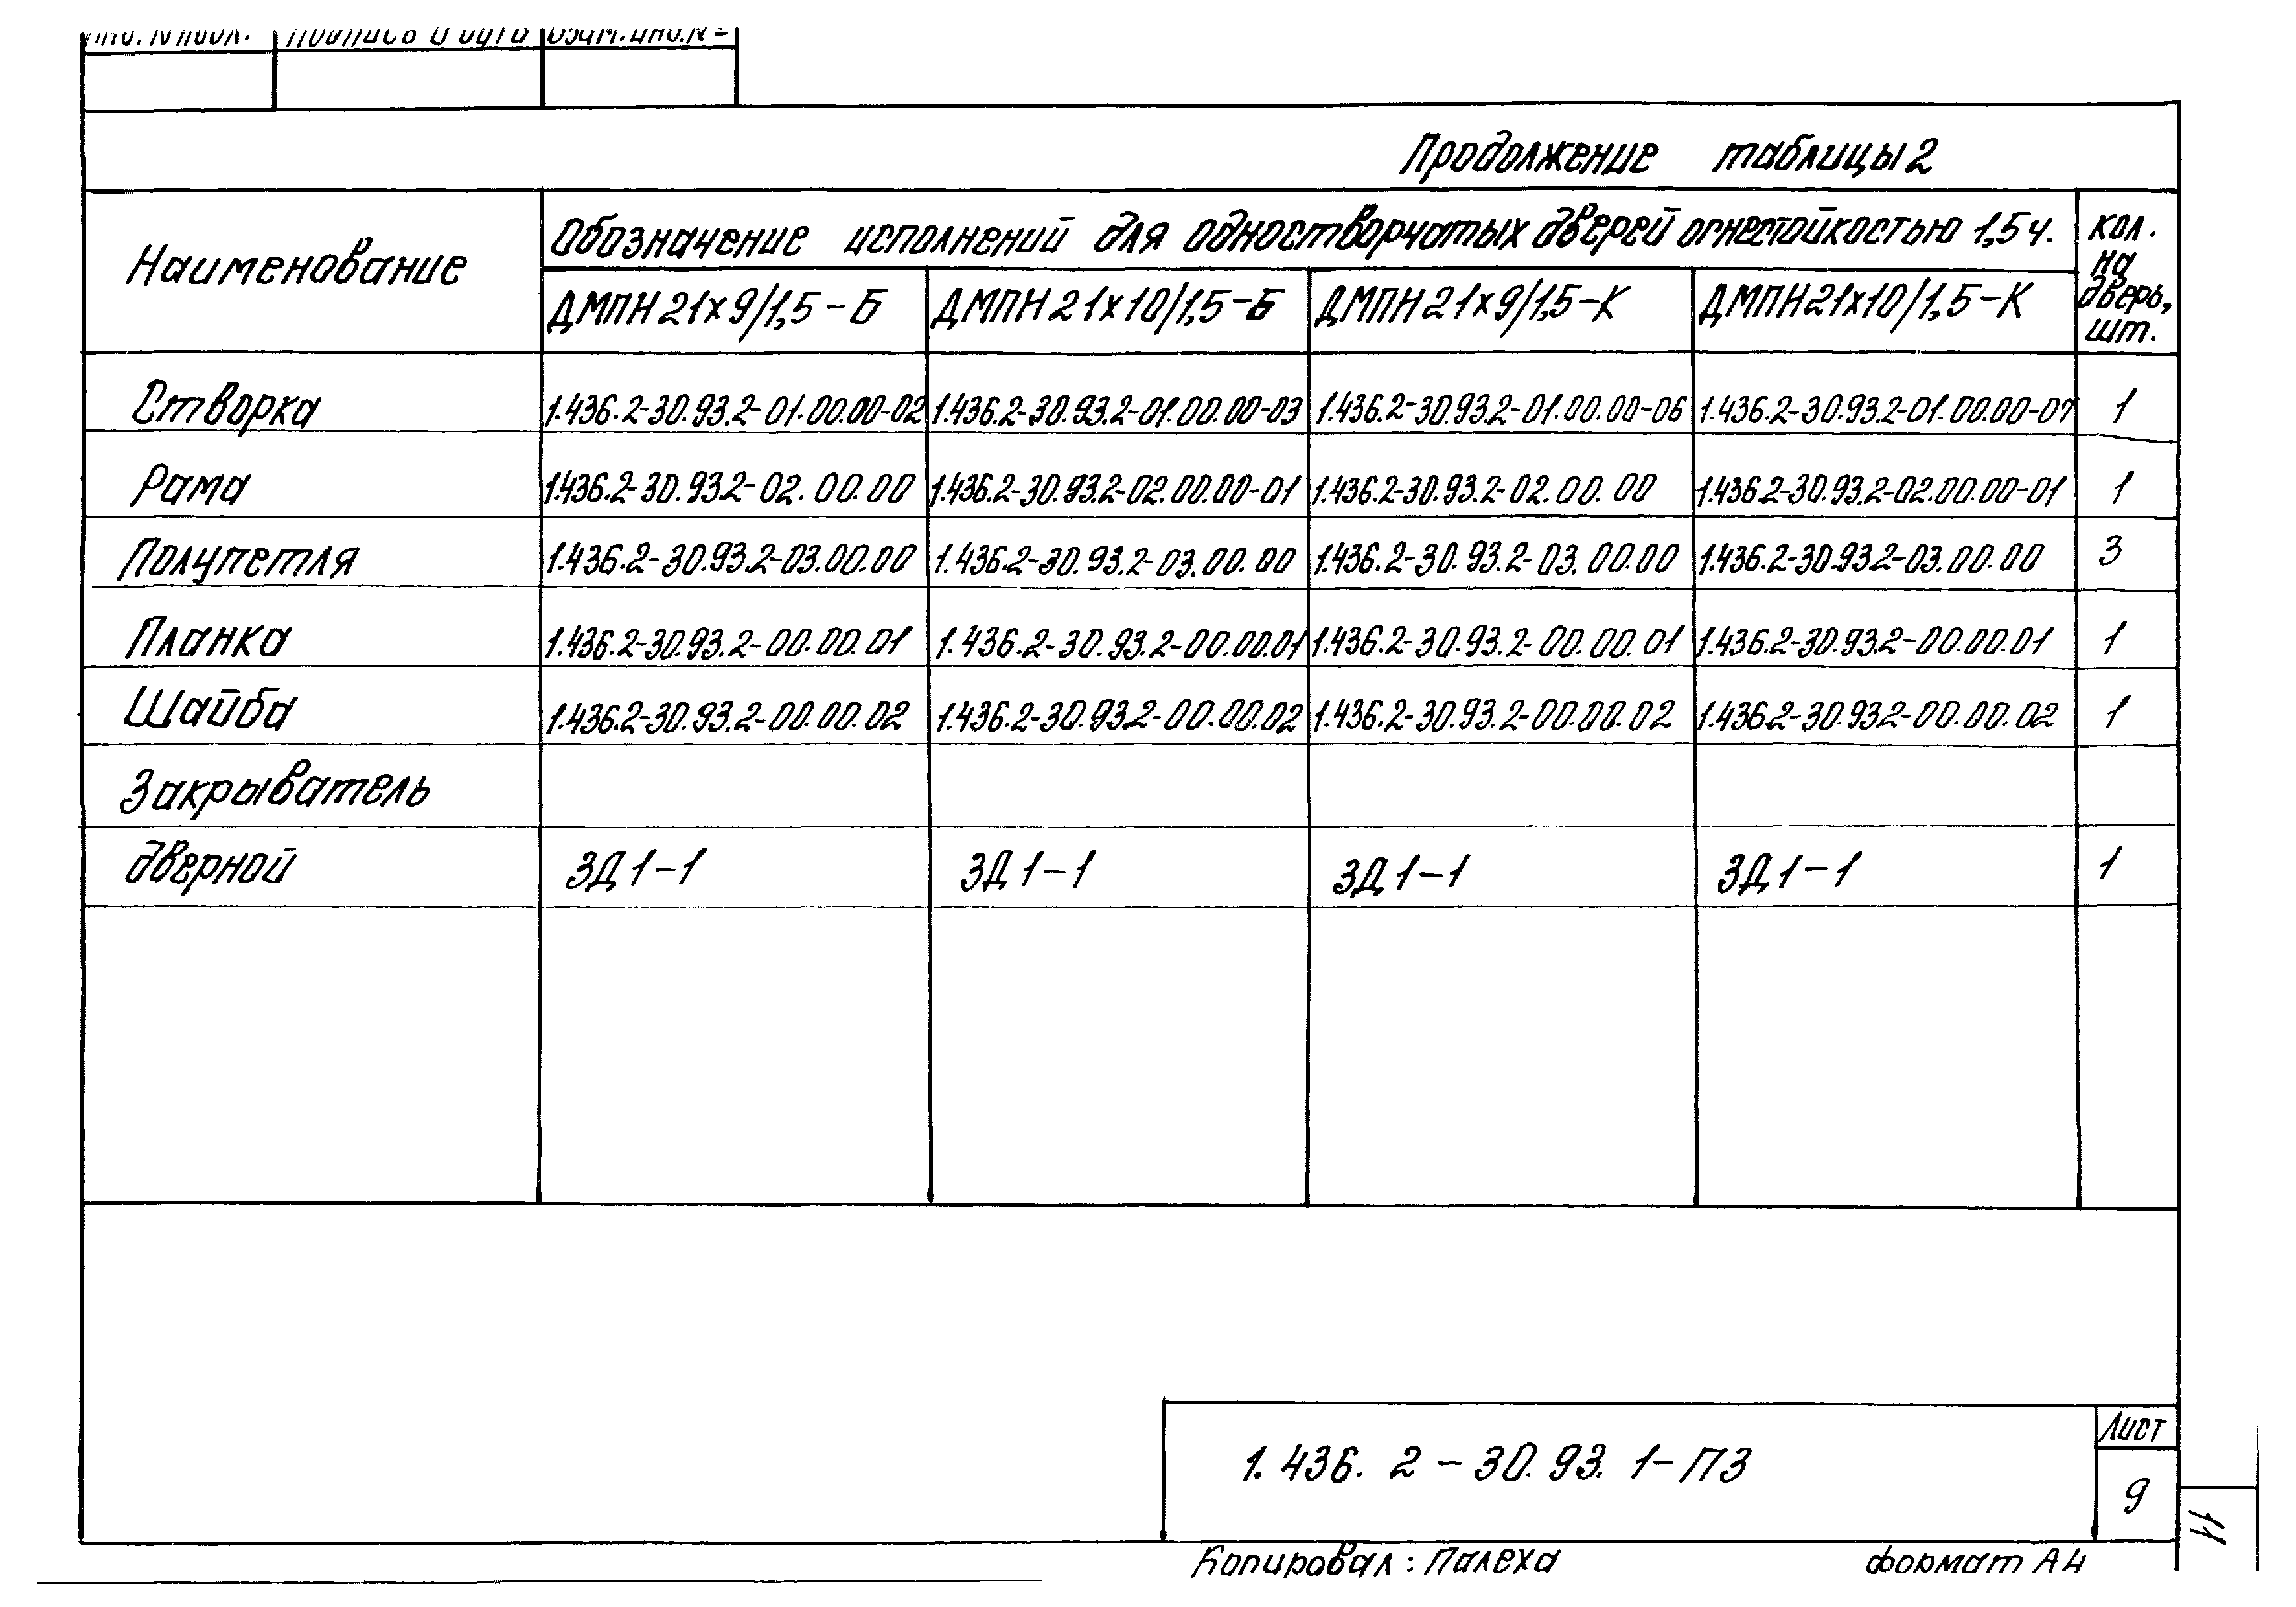 Подпись и дата
Взам.инв.№
Продолжение таблицы 2
Наименование
Обозначение исполнений для одностворчатых дверей огнестойкостью 1,5 ч.
кол. на дверь, шт.
ДМПН 21х9/1,5-Б ДМПН 21х10/1,5-Б ДМПН 21х9/1,5-К ДМПН 21х10/1,5-К
Створка 1.436.2-30.93.2-01.00.00-02 1.436.2-30.93.2-01.00.00-03 1.436.2-30.93.2-01.00.00-06 1.436.2-30.93.2-01.00.00-07 1
Рама 1.436.2-30.93.2-02.00.00 1.436.2-30.93.2-02.00.00-01 1.436.2-30.93.2-02.00.00 1.436.2-30.93.2-02.00.00-01 1
Полупетля 1.436.2-30.93.2-03.00.00 1.436.2-30.93.2-03.00.00 1.436.2-30.93.2-03.00.00 1.436.2-30.93.2-03.00.00 3
Планка 1.436.2-30.93.2-00.00.01 1.436.2-30.93.2-00.00.01 1.436.2-30.93.2-00.00.01 1.436.2-30.93.2-00.00.01 1
Шайба 1.436.2-30.93.2-00.00.02 1.436.2-30.93.2-00.00.02 1.436.2-30.93.2-00.00.02 1.436.2-30.93.2-00.00.02 1
Закрыватель
дверной ЗД 1-1 ЗД 1-1 ЗД 1-1 ЗД 1-1 1
1.436.2-30.93.1-ПЗ
Лист
9
11
Копировал: Палеха
формат А4